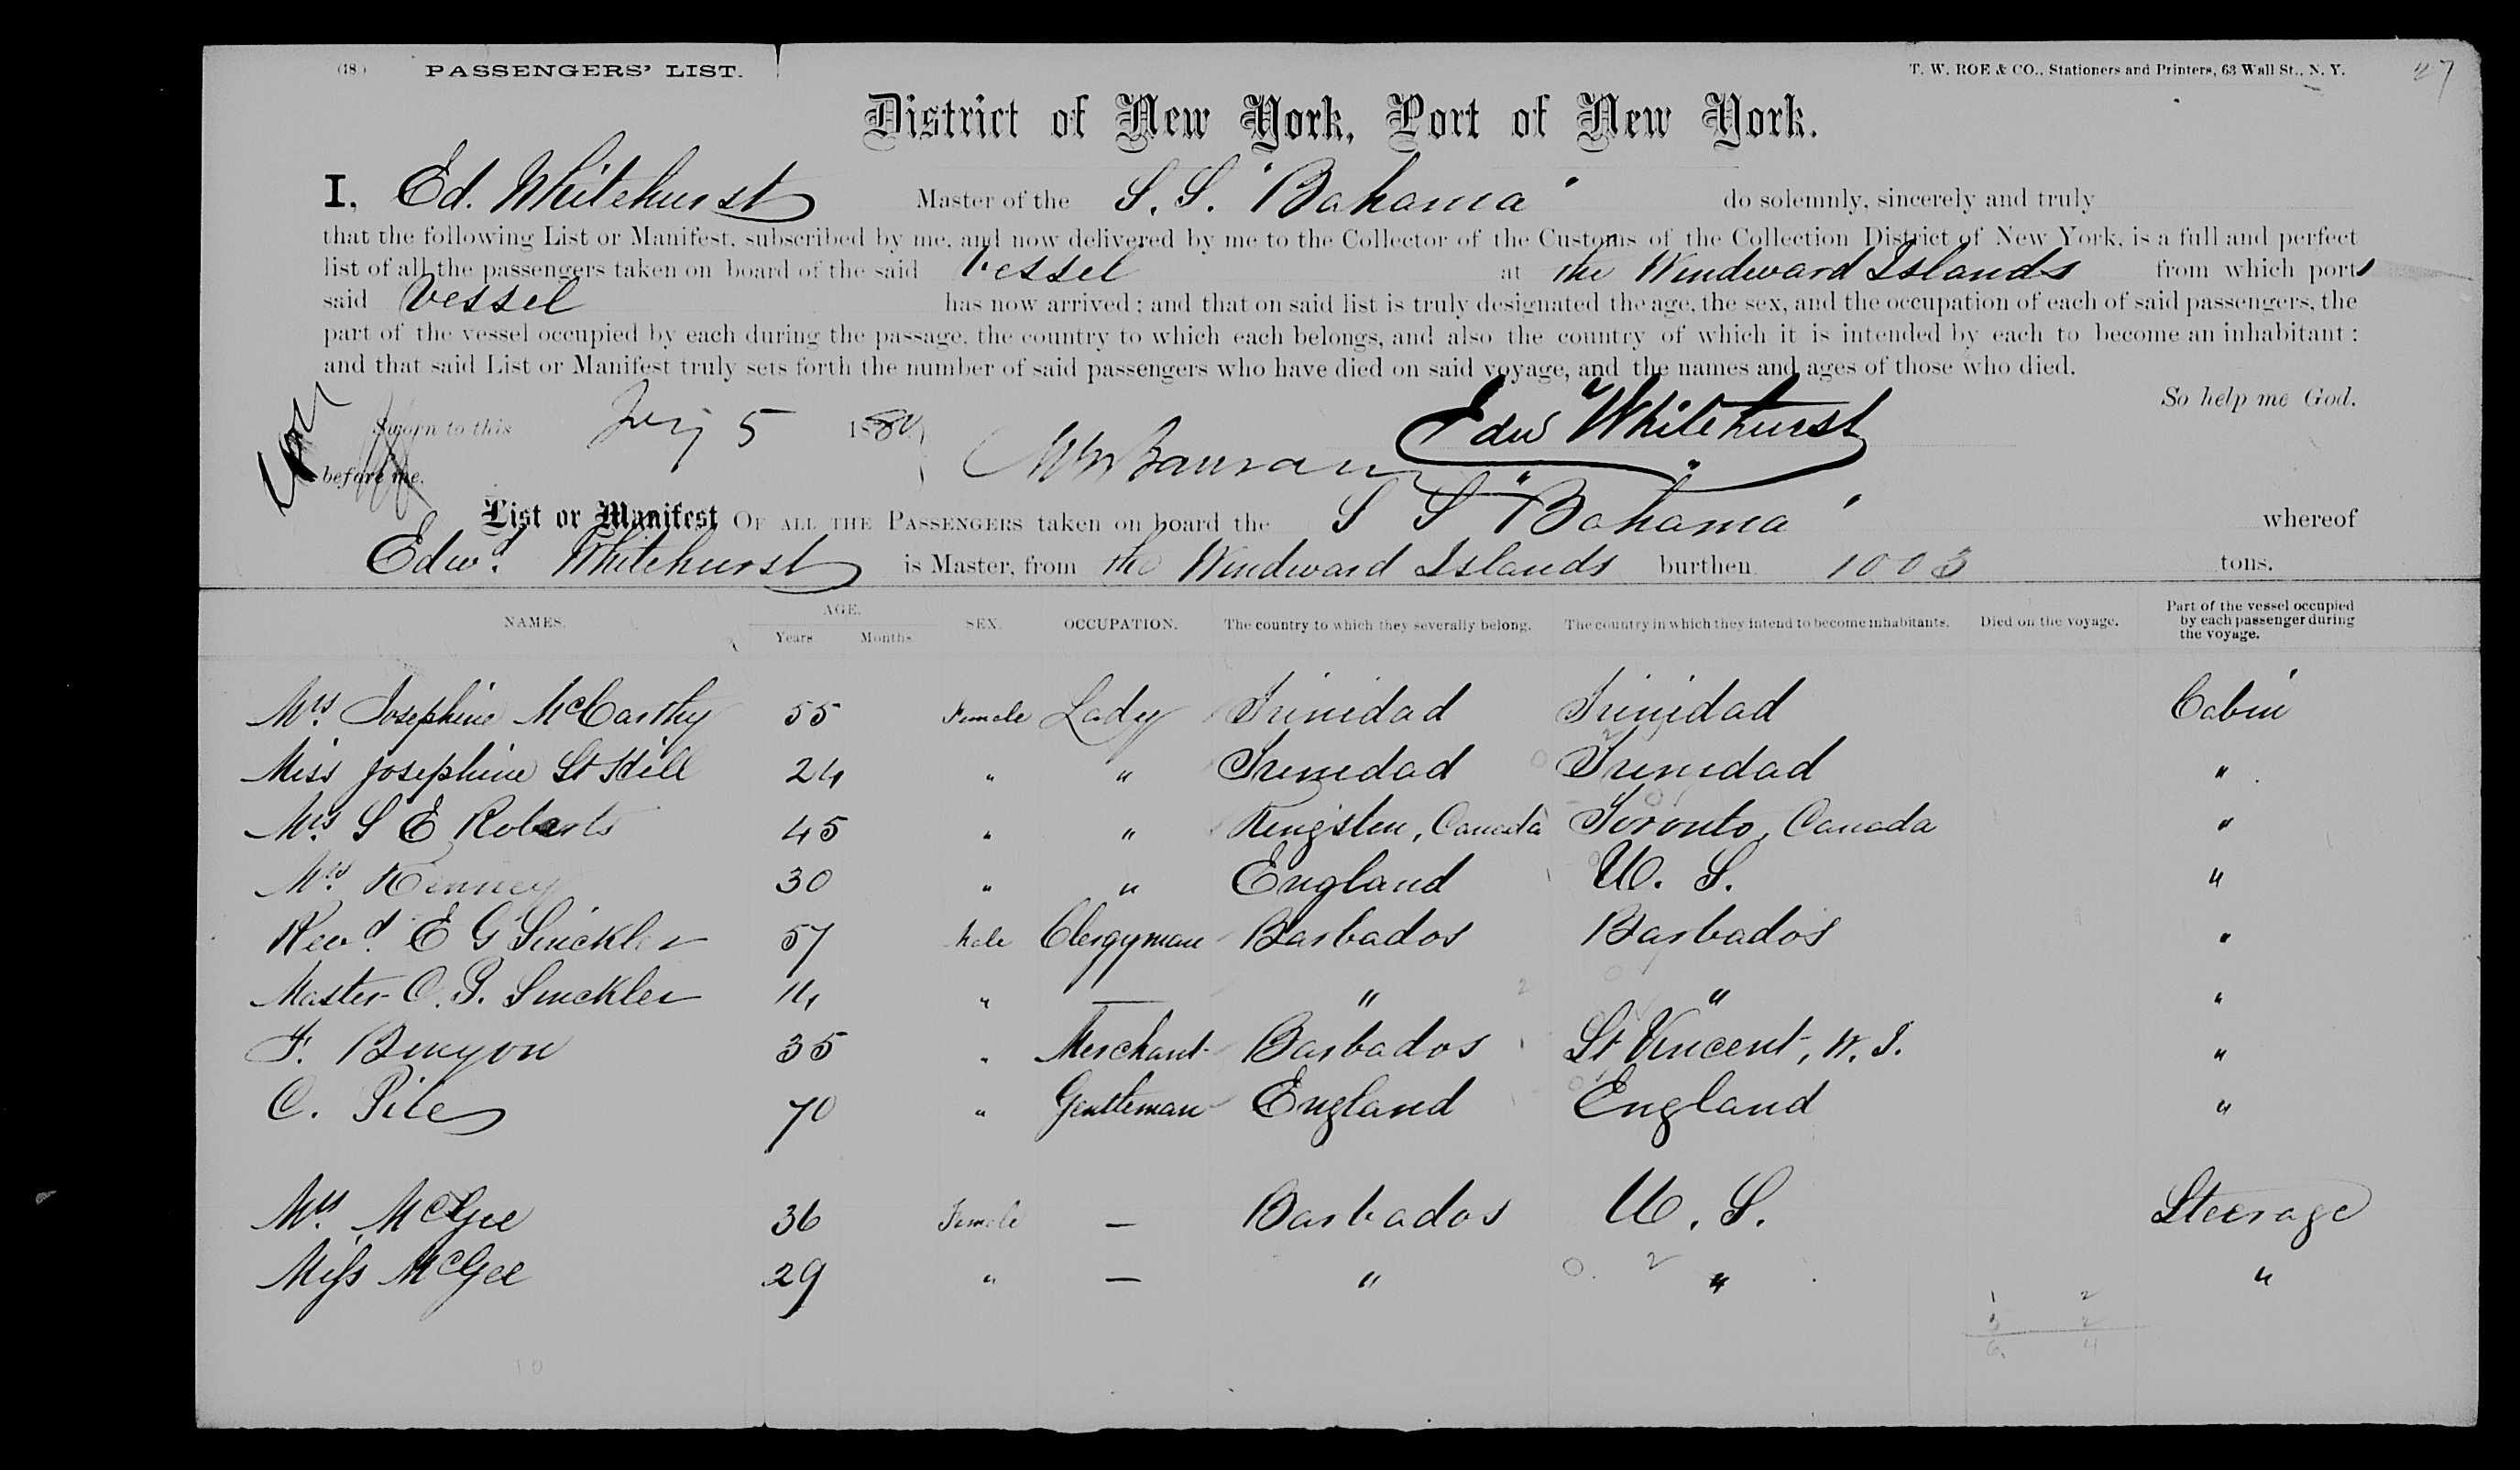 (18) PASSENGERS' LIST. T. W. ROE & CO., Stationers and Printers, 63 Wall St., N. Y. 27
District of New York, Port of New York.
I, Ed. Whitehurst Master of the S. S. "Bahama" do solemnly, sincerely and truly
that the following List or Manifest, subscribed by me, and now delivered by me to the Collector of the Customs of the Collection District of New York, is a full and perfect
list of all the passengers taken on board of the said Vessel at the Windward Islands from which ports
said Vessel has now arrived; and that on said list is truly designated the age, the sex, and the occupation of each of said passengers, the
part of the vessel occupied by each during the passage, the country to which each belongs, and also the country of which it is intended by each to become an inhabitant;
and that said List or Manifest truly sets forth the number of said passengers who have died on said voyage, and the names and ages of those who died.
So help me God.
Sworn to this 5 188 Edw Whitehurst
before me.
List or Manifest OF ALL THE PASSENGERS taken on board the S S "Bahama" whereof
Edwd. Whitehurst is Master, from the Windward Islands burthen 1003 tons.
NAMES. AGE. Years Months. SEX. OCCUPATION. The country to which they severally belong. The country in which they intend to become inhabitants. Died on the voyage. Part of the vessel occupied by each passenger during the voyage.
Mrs. Josephine McCarthy 55 Female Lady Trinidad Trinidad Cabin
Miss Josephine St Hill 24 " " Trinidad Trinidad "
Mrs. S E Roberts 45 " " Kingston, Canada Toronto, Canada "
Mrs. Kenney 30 " " England U. S. "
Revd. E G Sinckler 57 Male Clergyman Barbados Barbados "
Master C. P. Sinckler 14 " — " " "
F. Binyon 35 " Merchant Barbados St Vincent, W. I. "
C. Pile 70 " Gentleman England England "
Mrs. McGee 36 Female — Barbados U. S. Steerage
Miss McGee 29 " — " " "
10